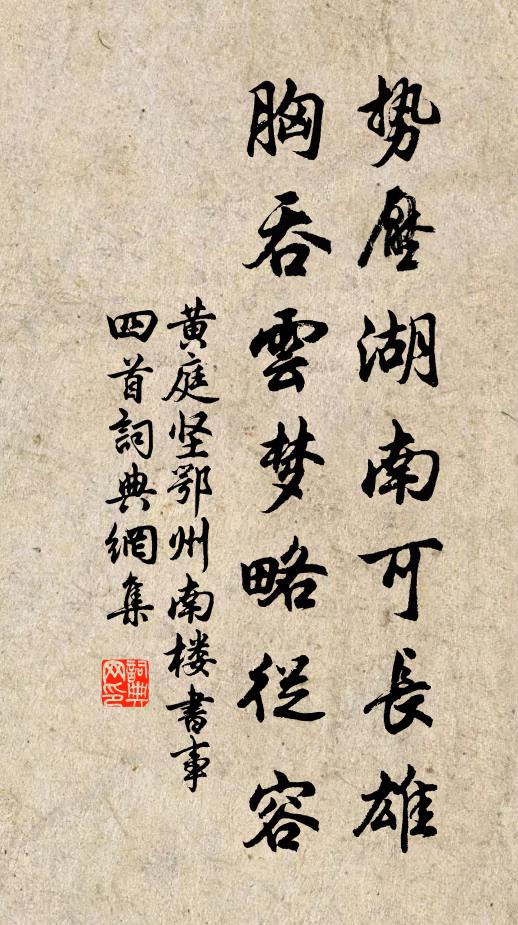 势壓湖南可長雄
胸吞雲梦略從容
黃庭坚鄂州南楼書事
四首詞典網集
詞典网印